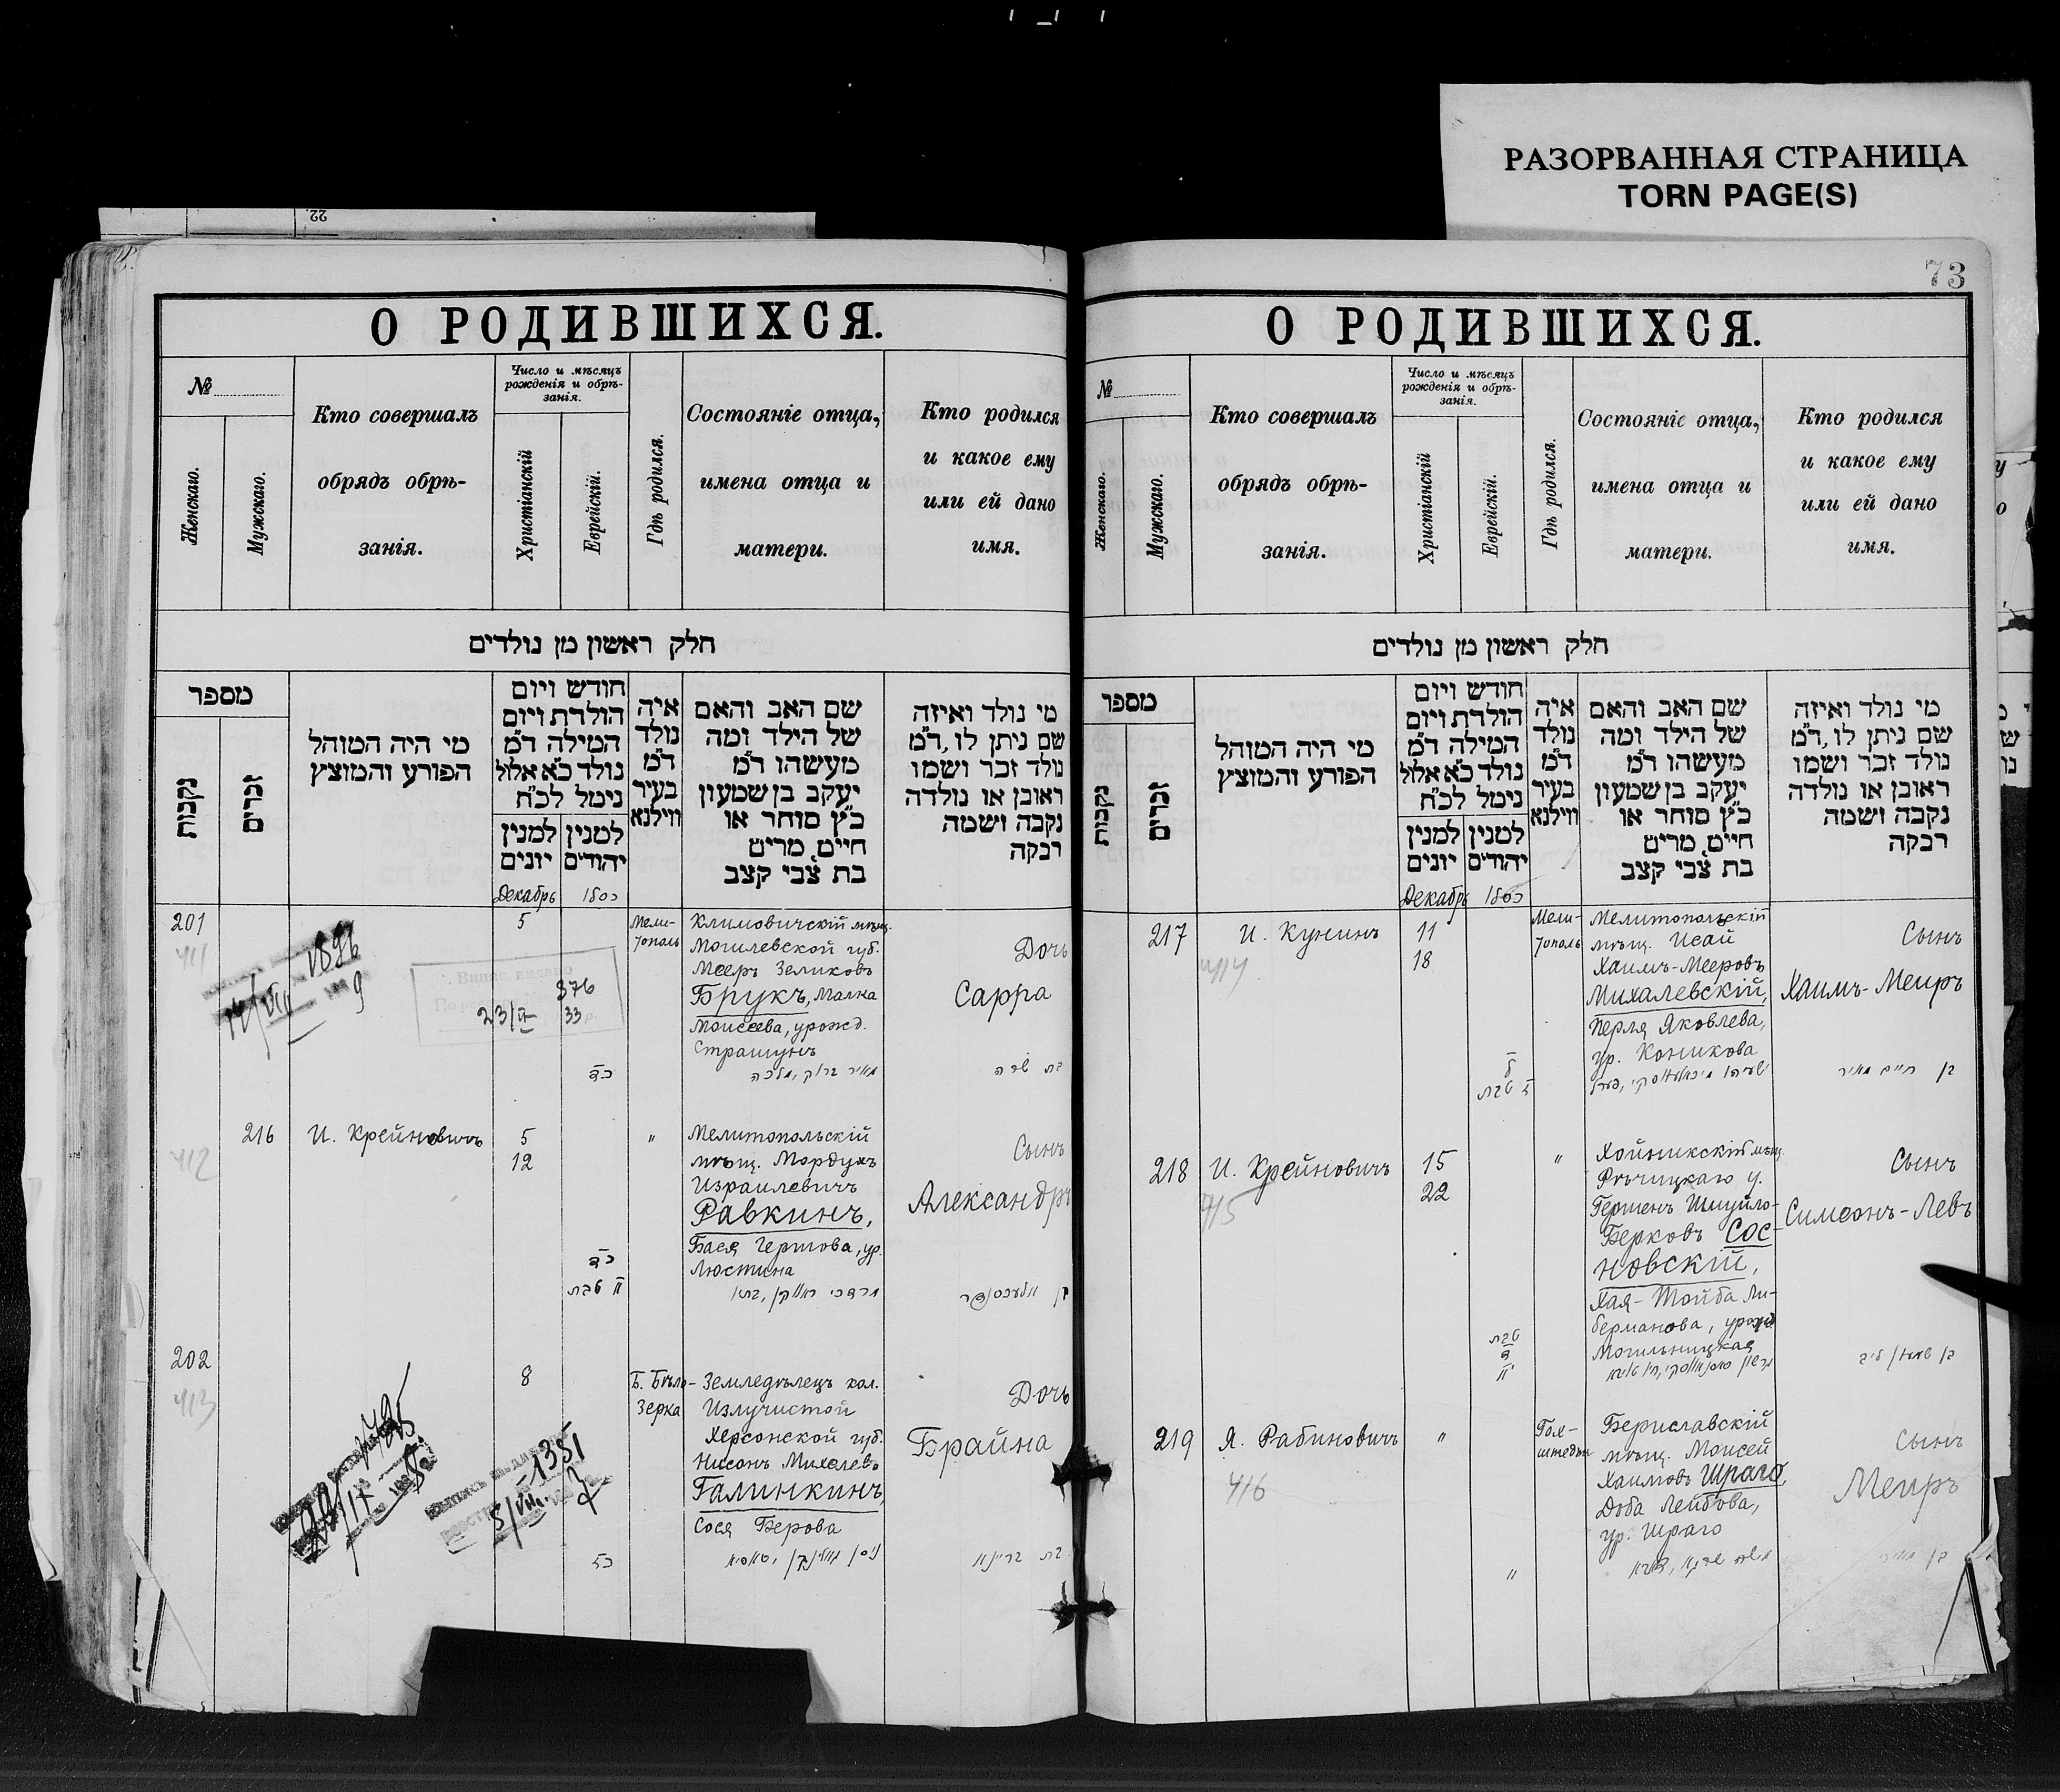 РАЗОРВАННАЯ СТРАНИЦА
TORN PAGE(S)
22.
О РОДИВШИХСЯ.
№
Женскаго.
Мужскаго.
Кто совершалъ
обрядъ обрѣ-
занія.
Число и мѣсяцъ
рожденія и обрѣ-
занія.
Христіанскій
Еврейскій.
Гдѣ родился.
Состояніе отца,
имена отца и
матери.
Кто родился
и какое ему
или ей дано
имя.
חלק ראשון מן נולדים
מספר
נקבות
זכרים
מי היה המוהל
הפורע והמוצץ
חודש ויום
הולדת ויום
המילה ד״מ
נולד כ״א אלול
נימל לכ״ח
למנין
יונים
למנין
יהודים
איה
נולד
ד״מ
בעיר
ווילנא
שם האב והאם
של הילד ומה
מעשהו ד״מ
יעקב בן שמעון
כ״ץ סוחר או
חייט, מרים
בת צבי קצב
מי נולד ואיזה
שם ניתן לו, ד״מ
נולד זכר ושמו
ראובן או נולדה
נקבה ושמה
רבקה
Декабрь
כסלו
201
411
1896
9
376
23/V 33
5
Мели-
тополь
Климовичскій мѣщ.
Могилевской губ.
Мееръ Зеликовъ
Брукъ, Малка
Моисеева, урожд.
Страшунъ
מאיר ברוק, מלכה
Дочь
Сарра
בת שרה
כד
216
412
И. Крейновичъ
5
12
"
Мелитопольскій
мѣщ. Мордухъ
Израилевичъ
Равкинъ,
Бася Гершова, ур.
Люстина
Сынъ
Александръ
כד
טבת
202
413
8
Б. Бѣло-
зерка
Земледѣлецъ кол.
Излучистой
Херсонской губ.
Нисонъ Михелевъ
Галинкинъ,
Сося Берова
Дочь
Брайна
בת בריינא
כז
1351
73
О РОДИВШИХСЯ.
№
Женскаго.
Мужскаго.
Кто совершалъ
обрядъ обрѣ-
занія.
Число и мѣсяцъ
рожденія и обрѣ-
занія.
Христіанскій
Еврейскій.
Гдѣ родился.
Состояніе отца,
имена отца и
матери.
Кто родился
и какое ему
или ей дано
имя.
חלק ראשון מן נולדים
מספר
נקבות
זכרים
מי היה המוהל
הפורע והמוצץ
חודש ויום
הולדת ויום
המילה ד״מ
נולד כ״א אלול
נימל לכ״ח
למנין
יונים
למנין
יהודים
איה
נולד
ד״מ
בעיר
ווילנא
שם האב והאם
של הילד ומה
מעשהו ד״מ
יעקב בן שמעון
כ״ץ סוחר או
חייט, מרים
בת צבי קצב
מי נולד ואיזה
שם ניתן לו, ד״מ
נולד זכר ושמו
ראובן או נולדה
נקבה ושמה
רבקה
Декабрь
כסלו
217
414
И. Кунинъ
11
18
Мели-
тополь
Мелитопольскій
мѣщ. Исай
Хаимъ-Мееровъ
Михалевскій,
Перля Яковлева,
ур. Коникова
Сынъ
Хаимъ-Меиръ
בן חיים מאיר
ל
טבת
218
415
И. Крейновичъ
15
22
"
Хойникскій мѣщ.
Рѣчицкаго у.
Гершенъ Шмуйло-
Берковъ Сос-
новскій,
Хая-Тойба Ли-
бермanова, урожд
Могильницкая
Сынъ
Симеонъ-Левъ
טבת
ד
219
416
Я. Рабиновичъ
"
Гал-
штедтъ
Бериславскій
мѣщ. Моисей
Хаимовъ Шраго,
Доба Лейбова,
ур. Шраго
Сынъ
Меиръ
בן מאיר
"